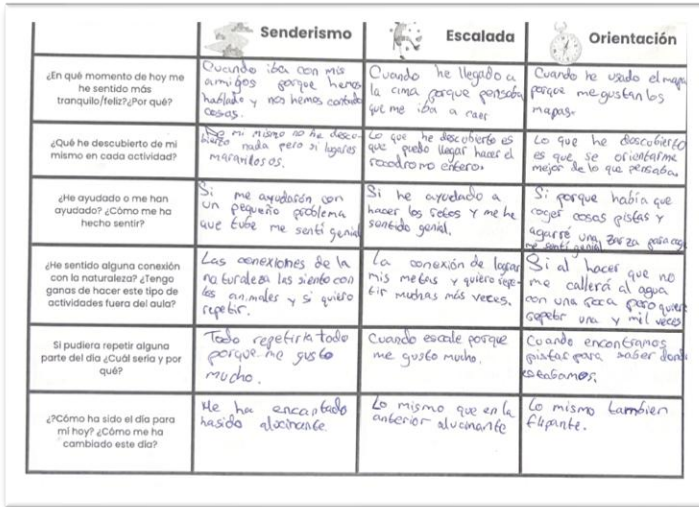 Senderismo
Escalada
Orientación
¿En qué momento de hoy me
he sentido más
tranquilo/feliz?¿Por qué?
Cuando iba con mis
amigos porque hemos
hablado y nos hemos contado
cosas.
Cuando he llegado a
la cima porque pensaba
que me iba a caer
Cuando he usado el mapa
porque me gustan los
mapas.
¿Qué he descubierto de mi
mismo en cada actividad?
De mi mismo no he descu-
bierto nada pero si lugares
maravilosos.
Lo que he descubierto es
que puedo llegar hacer el
rocodromo entero.
Lo que he descubierto
es que se orientarme
mejor de lo que pensaba.
¿He ayudado o me han
ayudado? ¿Cómo me ha
hecho sentir?
Si me ayudarón con
un pequeño problema
que tube me sentí genial
Si he ayudado a
hacer los retos y me he
sentido genial.
Si porque había que
coger cosas pistas y
agarré una zarza para coger
me sentí genial
¿He sentido alguna conexión
con la naturaleza? ¿Tengo
ganas de hacer este tipo de
actividades fuera del aula?
Las conexiones de la
naturaleza las siento con
los animales y si quiero
repetir.
La conexión de lograr
mis metas y quiero repe-
tir muchas más veces.
Si al hacer que no
me callerá al agua
con una roca pero quiero
repetir una y mil veces
Si pudiera repetir alguna
parte del día ¿Cuál sería y por
qué?
Todo repetiria todo
porque me gusto
mucho.
Cuando escale porque
me gusto mucho.
Cuando encontramos
pistas para saber donde
estabamos.
¿?Cómo ha sido el día para
mi hoy? ¿Cómo me ha
cambiado este día?
Me ha encantado
hasido alucinante
Lo mismo que en la
anterior alucinante
Lo mismo tambien
flipante.